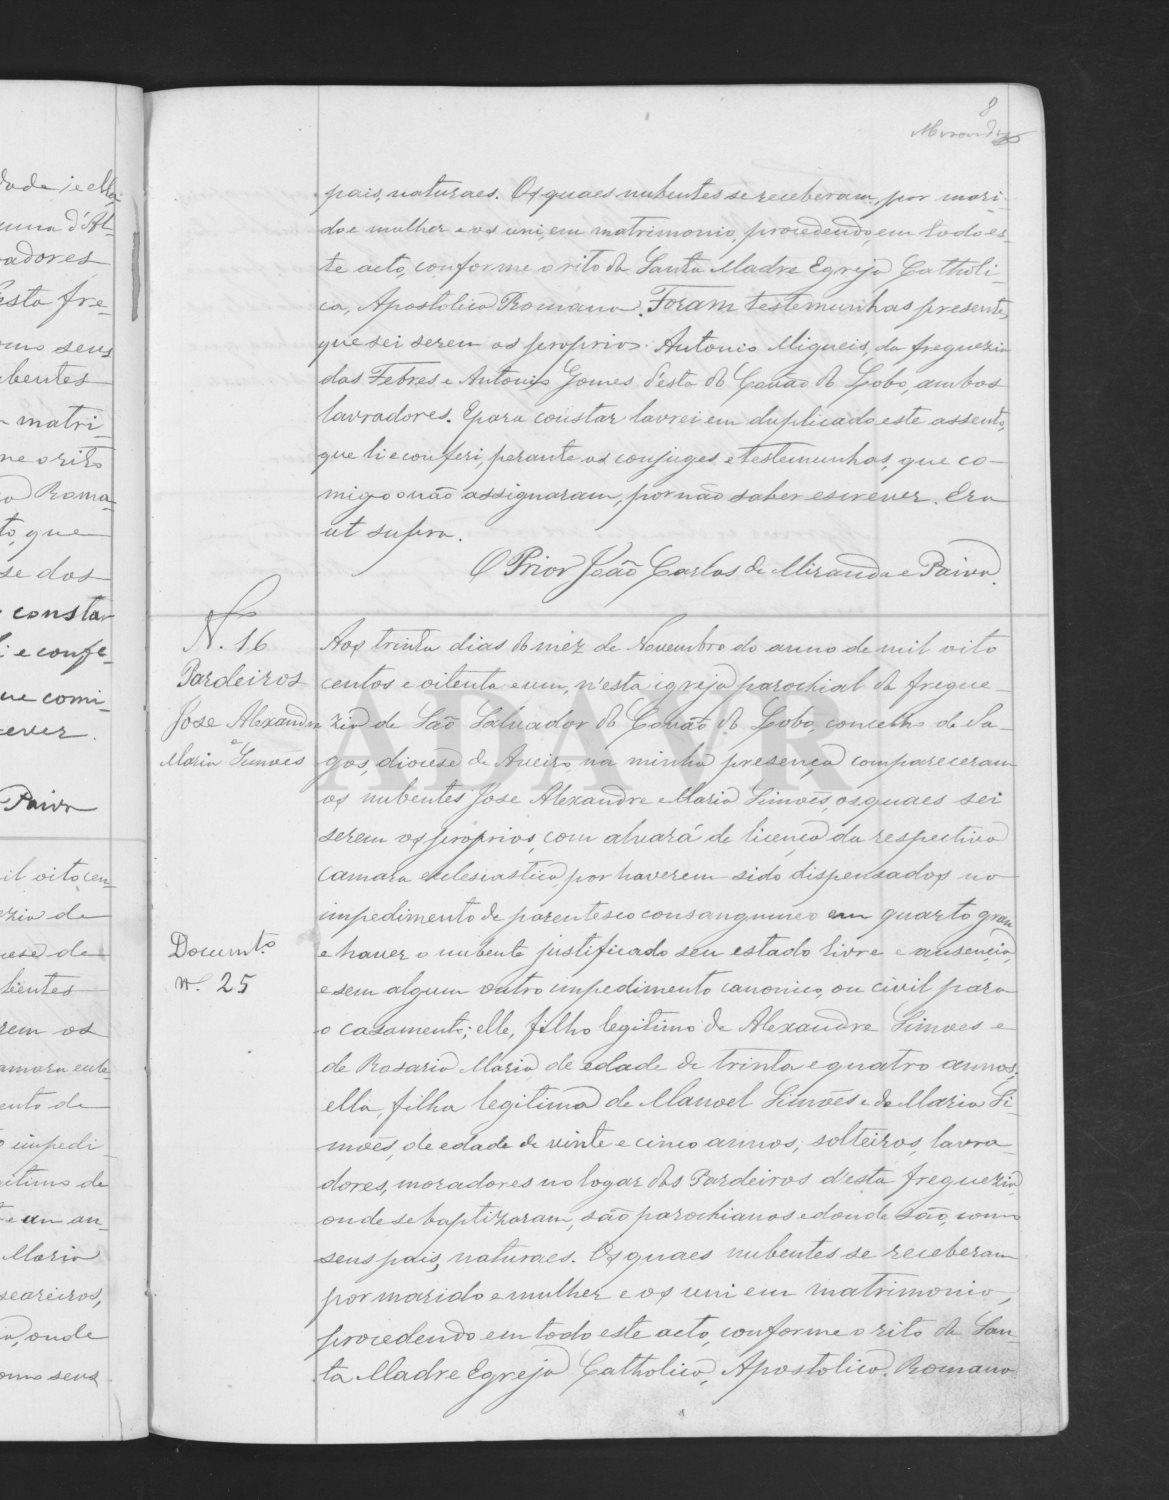 8
Miranda
pais, naturaes. Os quaes nubentes se receberam, por mari-
do e mulher e os uni, em matrimonio, procedendo, em todo es-
te acto, conforme o rito da Santa Madre Egreja Catholi-
ca, Apostolica Romana. Foram testemunhas presentes,
que sei serem os proprios. Antonio Migueis, da freguezia
das Febres e Antonio Gomes d'esta do Covão do Lobo, ambos
lavradores. E para constar lavrei em duplicado este assento,
que li e conferi, perante os conjuges e testemunhas, que co-
migo não assignaram, por não saber escrever. Era
ut supra.
O Prior João Carlos de Miranda e Paiva.
N. 16
Pardeiros
Jose Alexandre
e
Maria Simões
Aos trinta dias do mez de Novembro do anno de mil oito
centos e oitenta e um, n'esta igreja parochial da fregue-
zia de São Salvador do Covão do Lobo, concelho de Va-
gos, diocese de Aveiro, na minha presença compareceram
os nubentes Jose Alexandre e Maria Simões, os quaes sei
serem os proprios, com alvará de licença da respectiva
camara ecclesiastica, por haverem sido dispensados no
impedimento de parentesco consanguineo em quarto grau
e haver o nubente justificado seu estado livre e ausencia,
e sem algum outro impedimento canonico, ou civil para
o casamento; elle, filho legitimo de Alexandre Simões e
de Rosaria Maria, de edade de trinta e quatro annos;
ella, filha legitima de Manoel Simões e de Maria Si-
mões, de edade de vinte e cinco annos, solteiros, lavra-
dores, moradores no logar dos Pardeiros d'esta freguezia,
onde se baptizaram, são parochianos e donde são, como
seus pais, naturaes. Os quaes nubentes se receberam
por marido e mulher e os uni em matrimonio,
procedendo em todo este acto, conforme o rito da San-
ta Madre Egreja Catholica, Apostolica. Romana
Documto.
n. 25
ADAVR